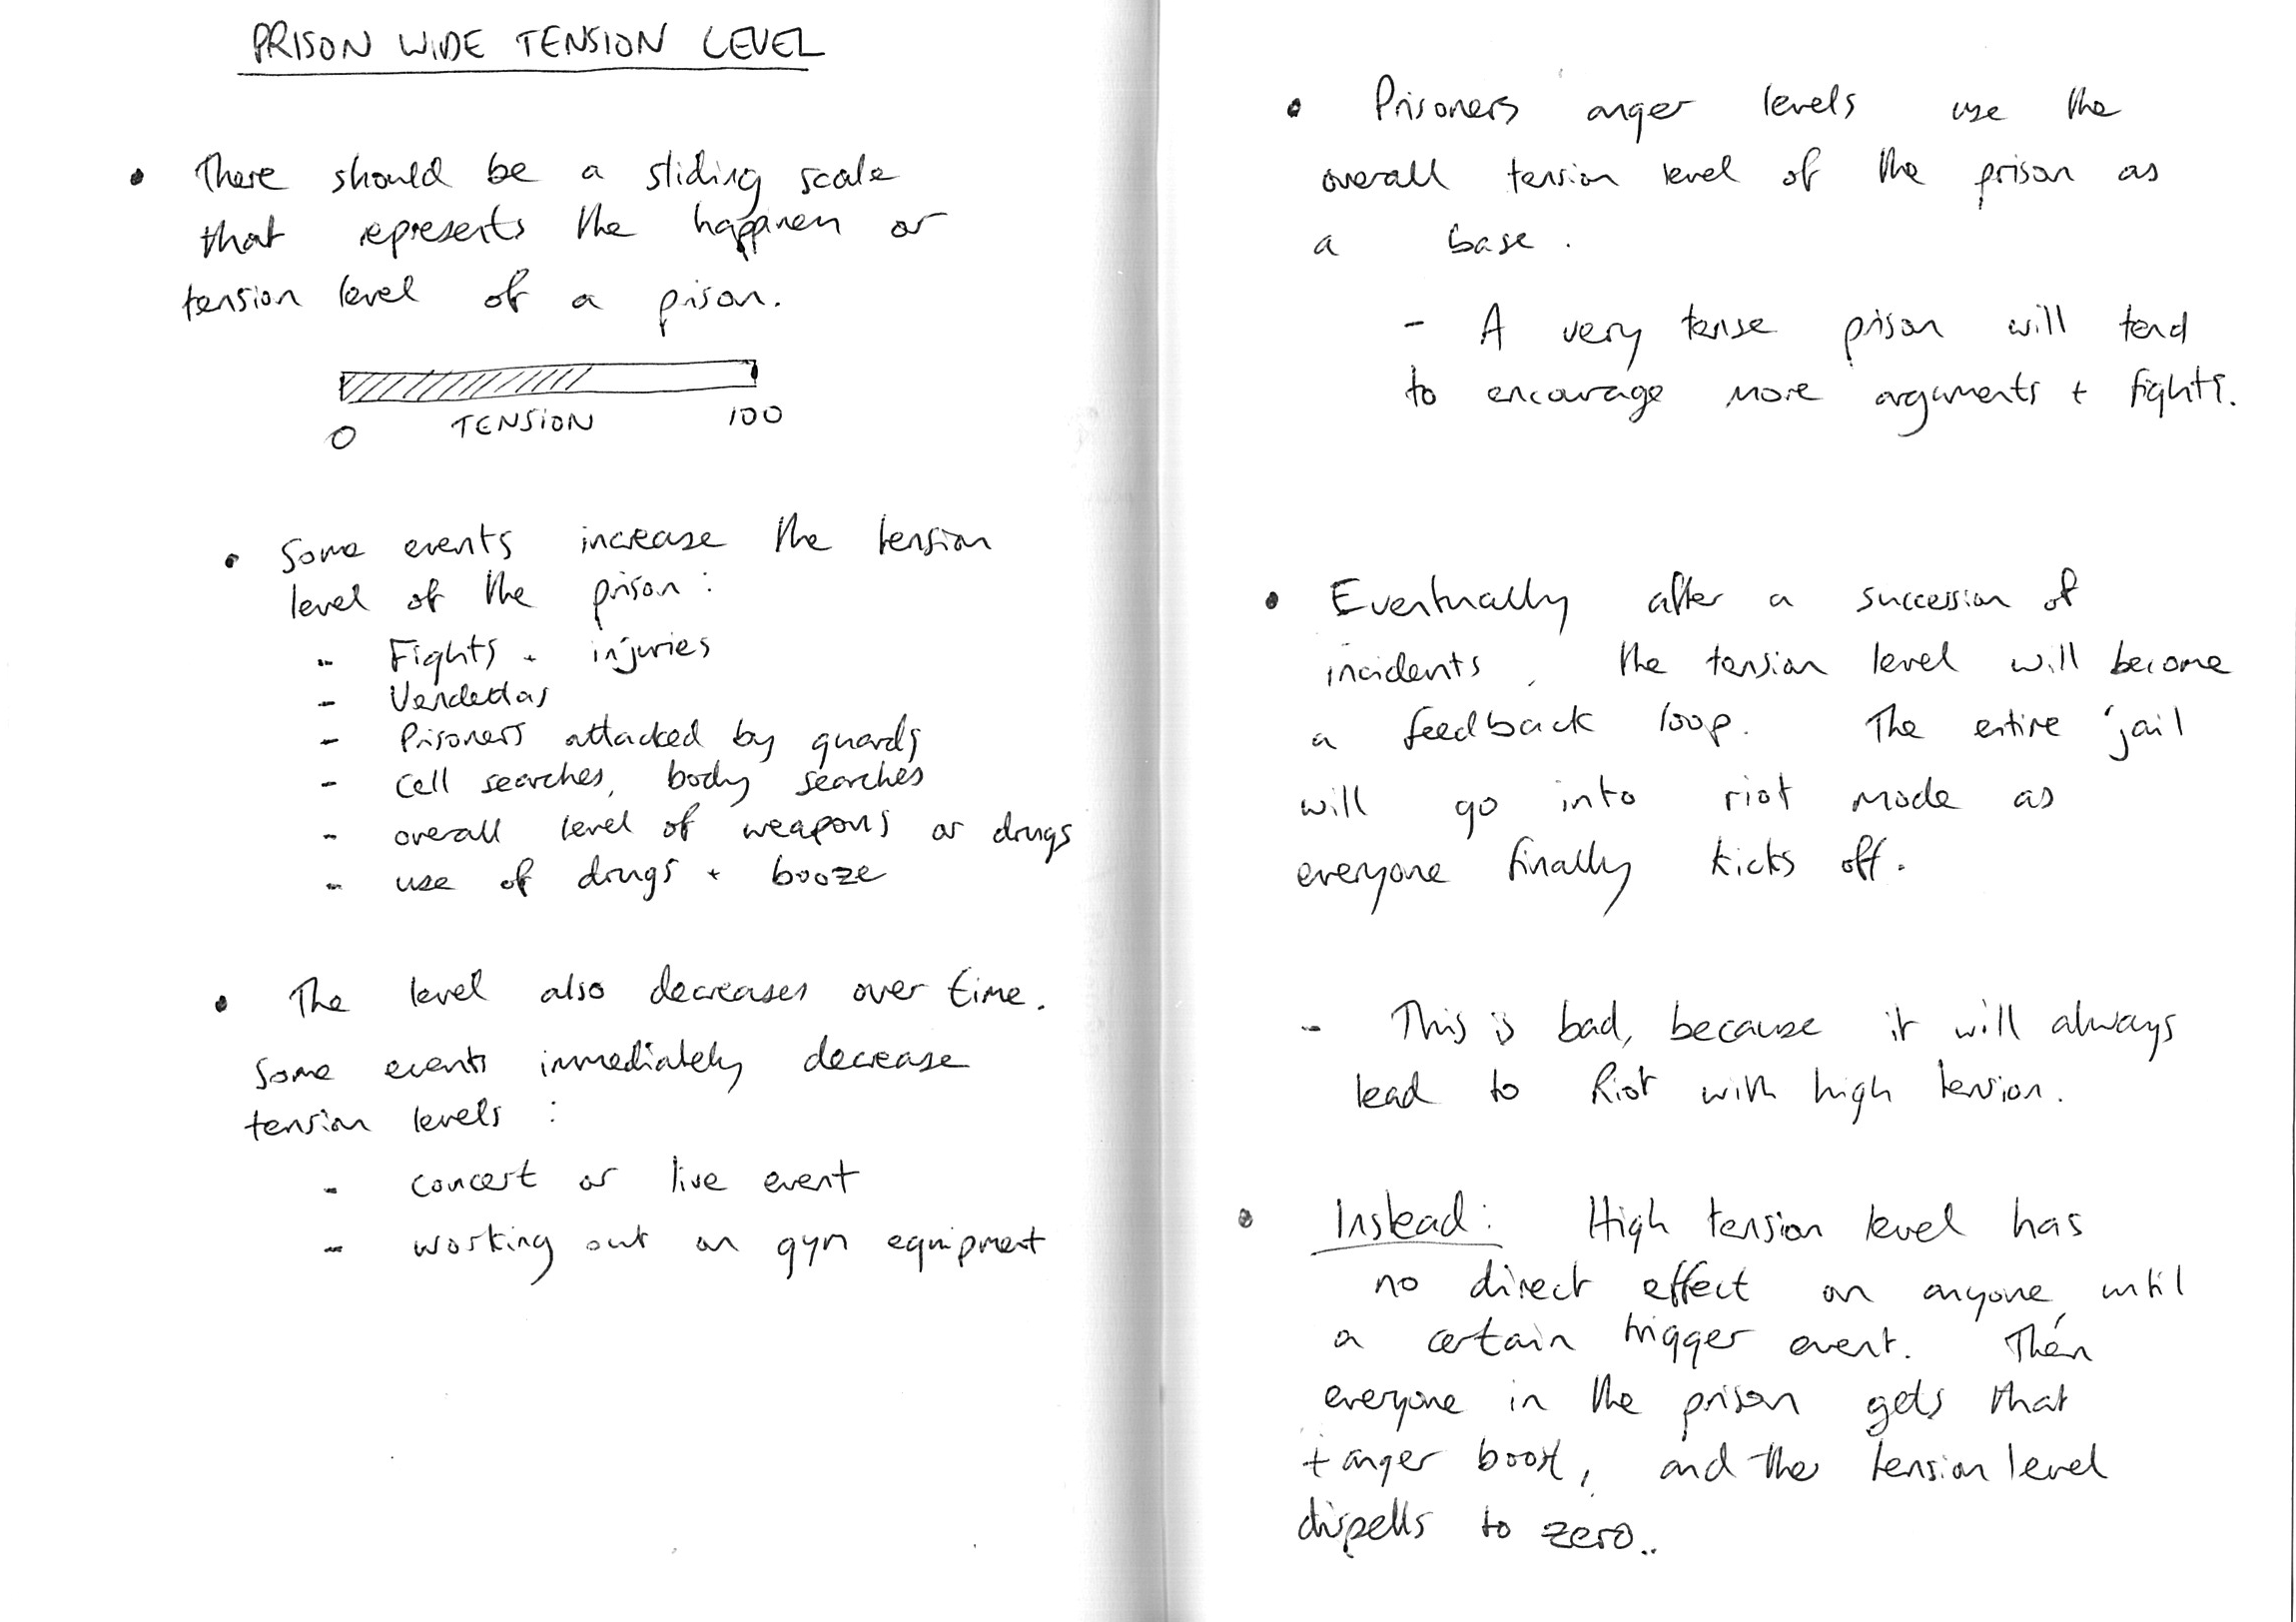 PRISON WIDE TENSION LEVEL
• There should be a sliding scale
that represents the happiness or
tension level of a prison.
0 TENSION 100
• Some events increase the tension
level of the prison:
- Fights + injuries
- Vendettas
- Prisoners attacked by guards
- Cell searches, body searches
- overall level of weapons or drugs
- use of drugs + booze
• The level also decreases over time.
Some events immediately decrease
tension levels:
- concert or live event
- working out on gym equipment
• Prisoners anger levels use the
overall tension level of the prison as
a base.
- A very tense prison will tend
to encourage more arguments + fights.
• Eventually after a succession of
incidents, the tension level will become
a feedback loop. The entire jail
will go into riot mode as
everyone finally kicks off.
- This is bad, because it will always
lead to Riot with high tension.
• Instead: High tension level has
no direct effect on anyone, until
a certain trigger event. Then
everyone in the prison gets that
+ anger boost, and the tension level
dispells to zero..